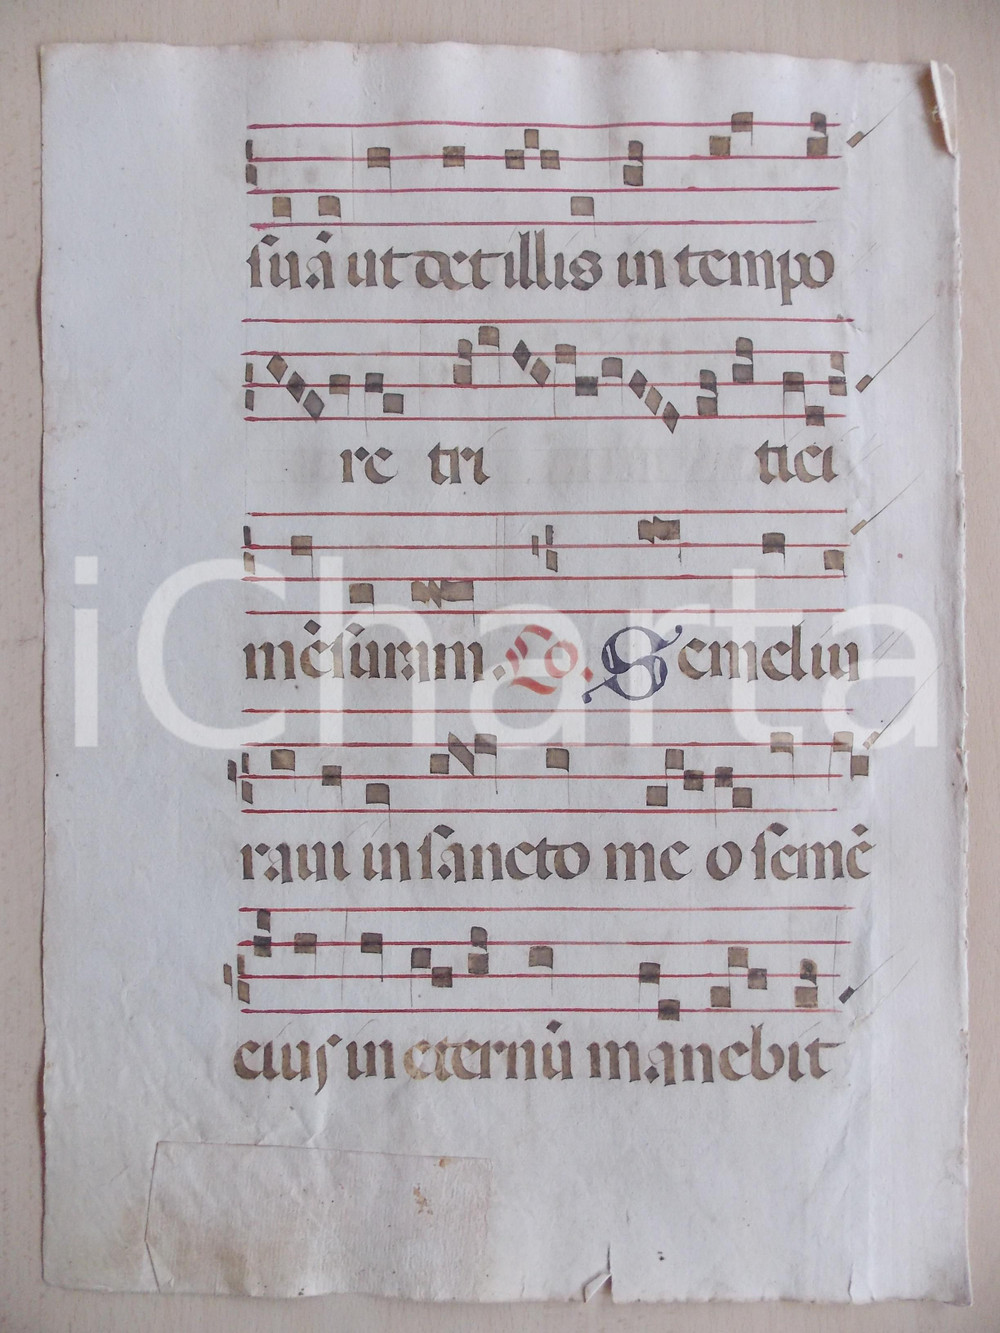 suā ut det illis in tempo
re tri tici
mēsuram. Co. Semel iu
raui in sancto meo semē
eius in eternū manebit
iCharta